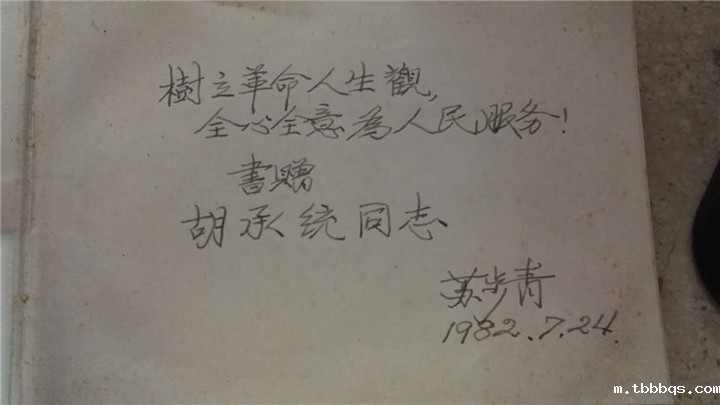 樹立革命人生觀,
全心全意為人民服务!
書贈
胡承统同志
苏步青
1982.7.24.
m.tbbbqs.com